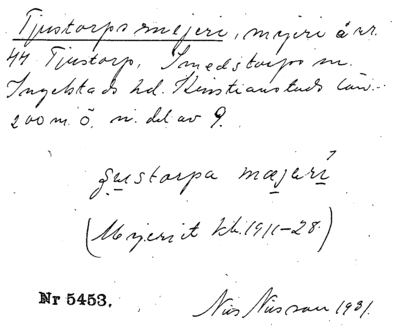 Tjustorps mejeri, mejeri å nr
44 Tjustorp, Smedstorps sn.
Ingelstads hd. Kristianstads län.
200 m. ö. n. del av 9.
ʃustorpa mæjəri
(Mejeriet kh. 1911–28.)
Nr 5453.
Nils Nilsson 1931.